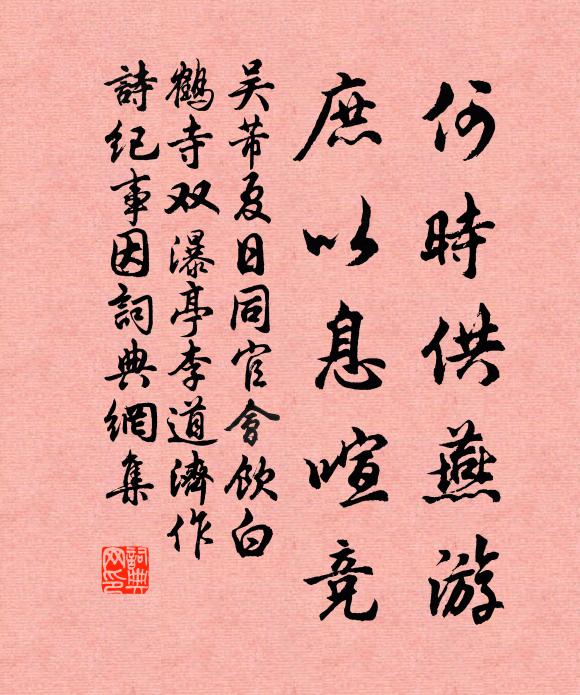 何時供燕游
庶以息喧竞
吴芾夏日同官會飲白
鶴寺双瀑亭李道濟作
詩纪事因詞典網集
詞典网印